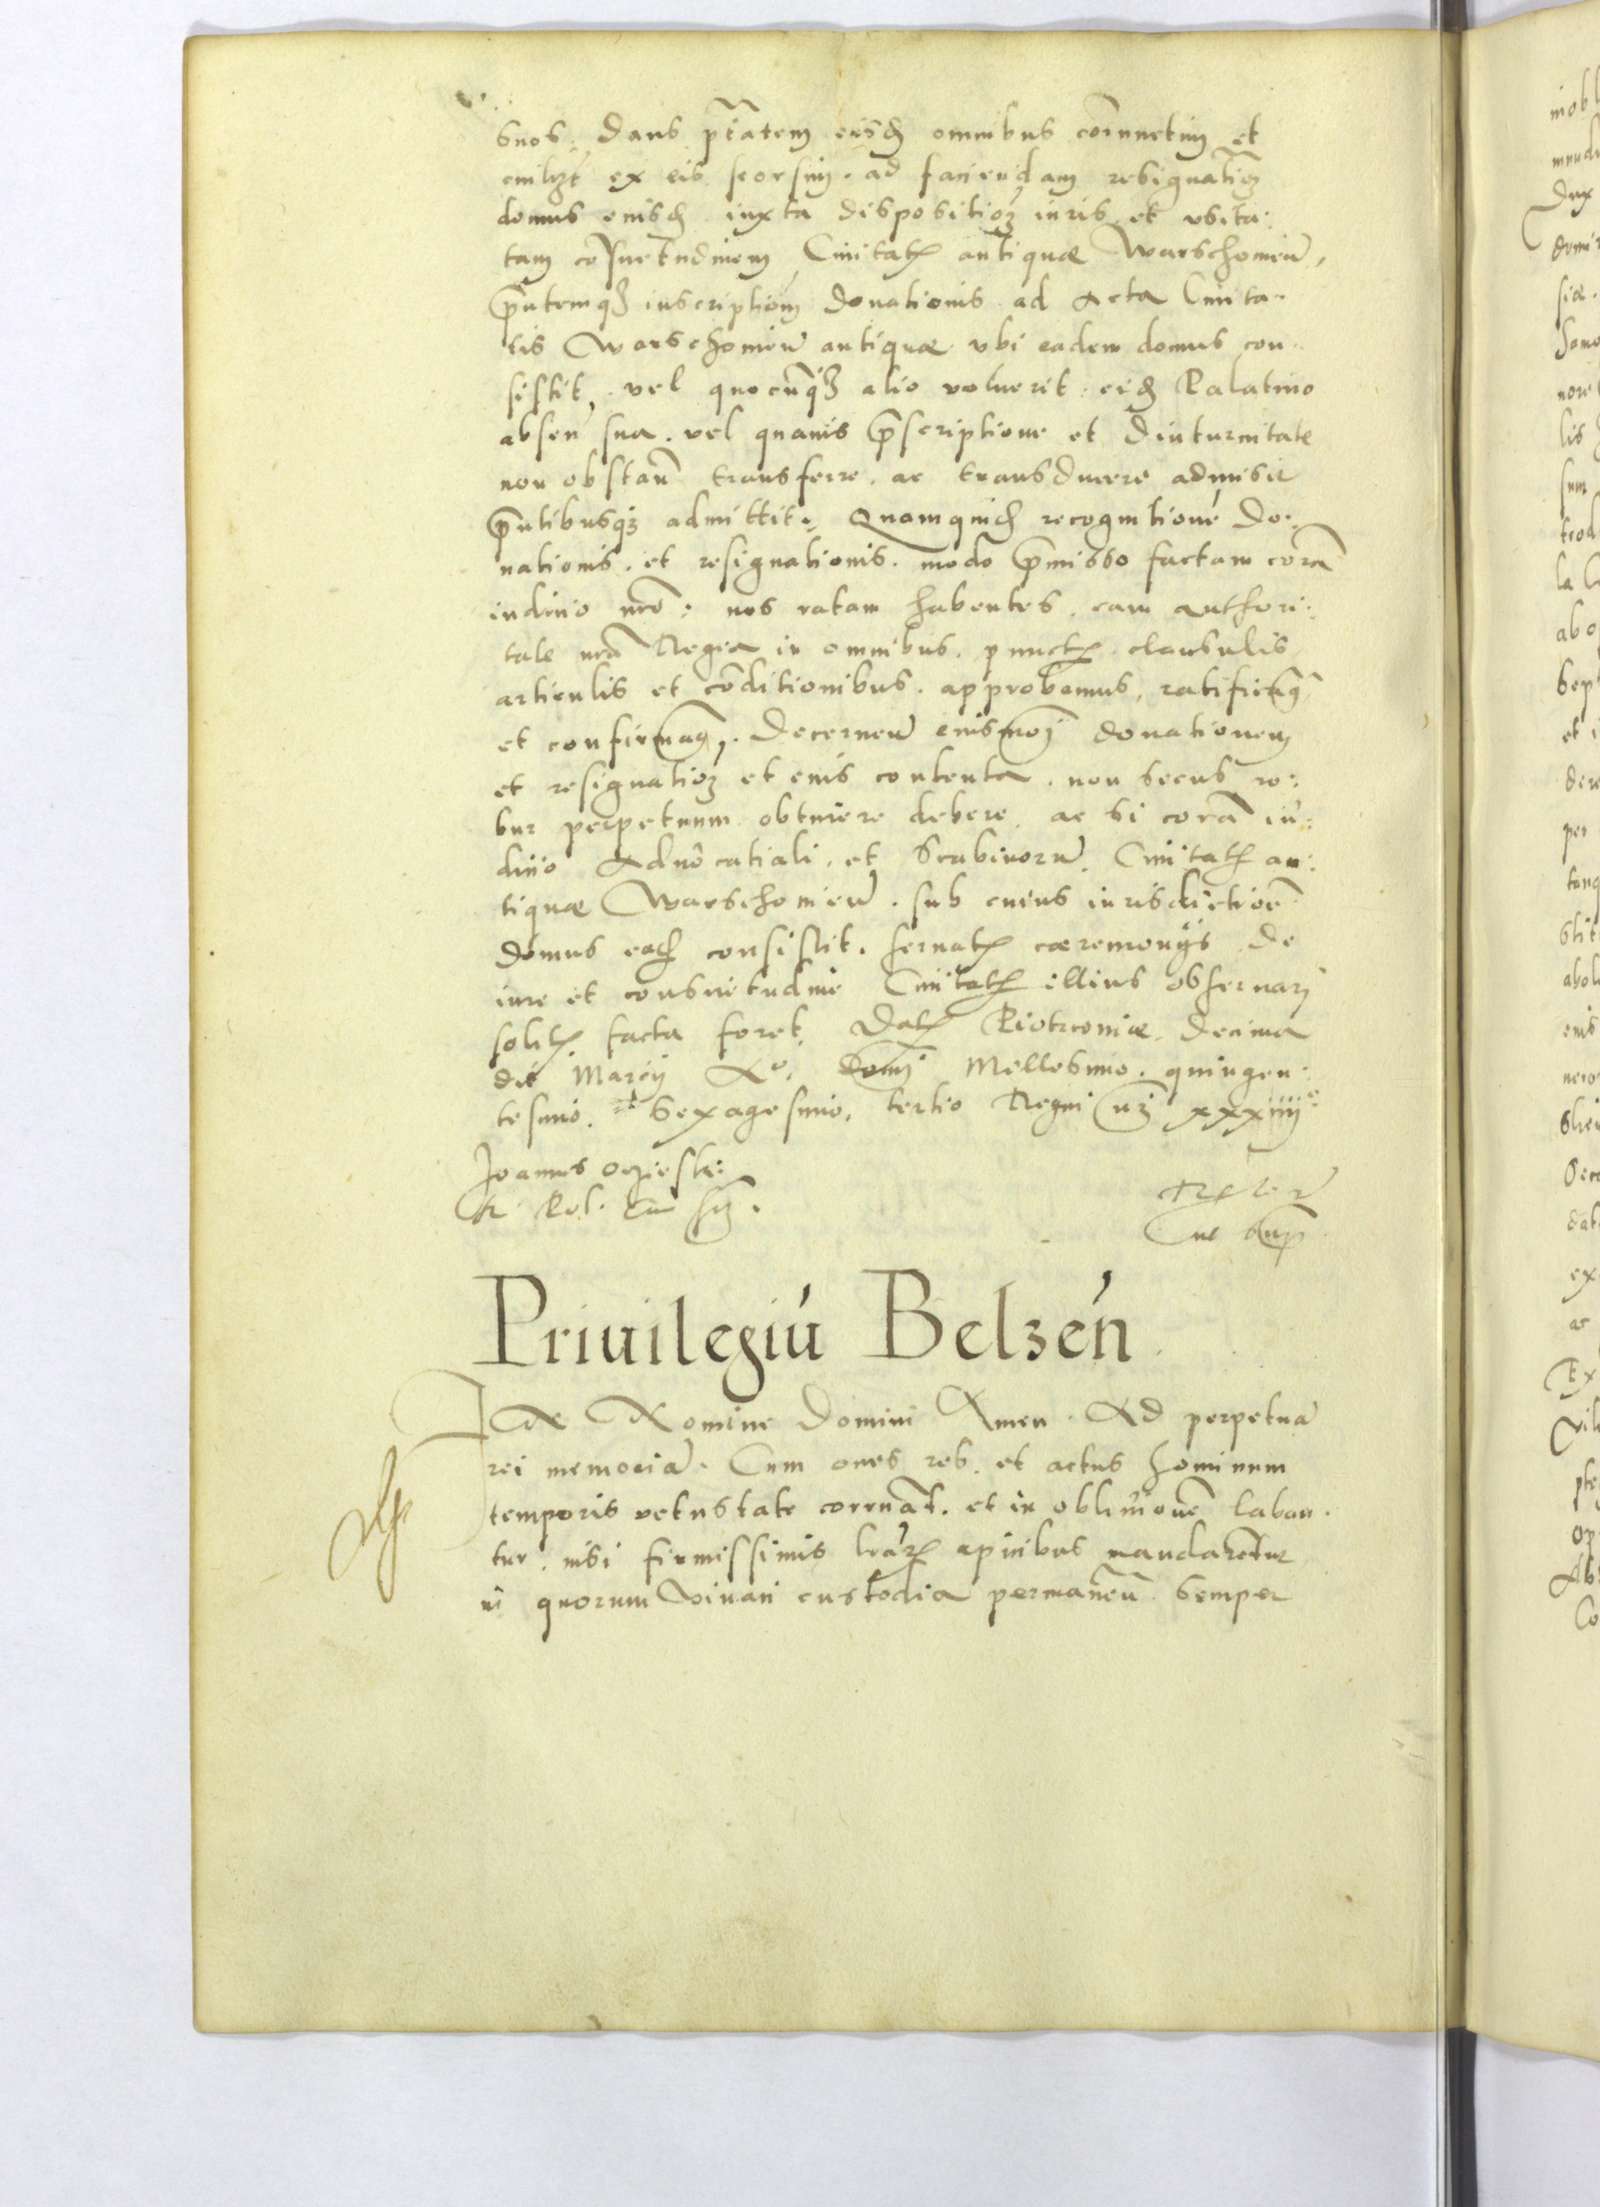 suos. Dans ptātem eisd omnibus coniunctim et
cuilibet ex eis seorsim. ad faciendam resignatioz
domus eiusd iuxta dispositioz iuris et usita:
tam consuetudinem Ciuitatis antiquæ Warschouien,
pntemqz inscriptionem donationis ad Acta Ciuita-
tis Warschouien antiquæ ubi eadem domus con-
sistit, vel quocunqz alio voluerit eid Palatino
absen sua. vel quauis pscriptione et diuturnitate
non obstan transferre. ac transducere admisit
pntibusqz admittit. Quamquid recognitioné Do:
nationis. et resignationis. modo pmisso factam corā
iudicio nrō: nos ratam habentes. eam authori:
tate nrā Regia in omnibus. punctis clausulis
articulis et conditionibus. approbamus, ratificamus
et confirmamus. Decernen eiusmoi donationem
et resignatioz et eius contenta. non secus ro:
bur perpetuum obtinere debere. ac si corā iu:
dicio Aduocatiali. et Scabinorū Ciuitatis an:
tiquæ Warschouien. sub cuius iurisdictioē
domus ead consistit. seruatis cæremonijs de
iure et consuetudine Ciuitatis illius obseruari
solitis facta foret. Datis Piotrcouiæ. Decima
die Marcij Ao. Domi Millesimo. quingen:
tesimo. sexagesimo, tertio Regni nri xxxiiij
Joannes ocziesk:
R Pol. Can
Priuilegiú Belzén
In Nomine Domini Amen. Ad perpetuā
rei memoriā. Cum oēs res. et actus hominum
temporis vetustate corruāt. et in obliuionē laban-
tur. nisi firmissimis lrārum apicibus mandarentur
in quorum viuaci custodia permanen semper